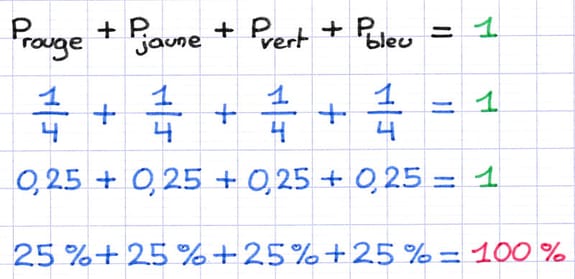 P rouge + P jaune + P vert + P bleu = 1
1/4 + 1/4 + 1/4 + 1/4 = 1
0,25 + 0,25 + 0,25 + 0,25 = 1
25 % + 25 % + 25 % + 25 % = 100 %